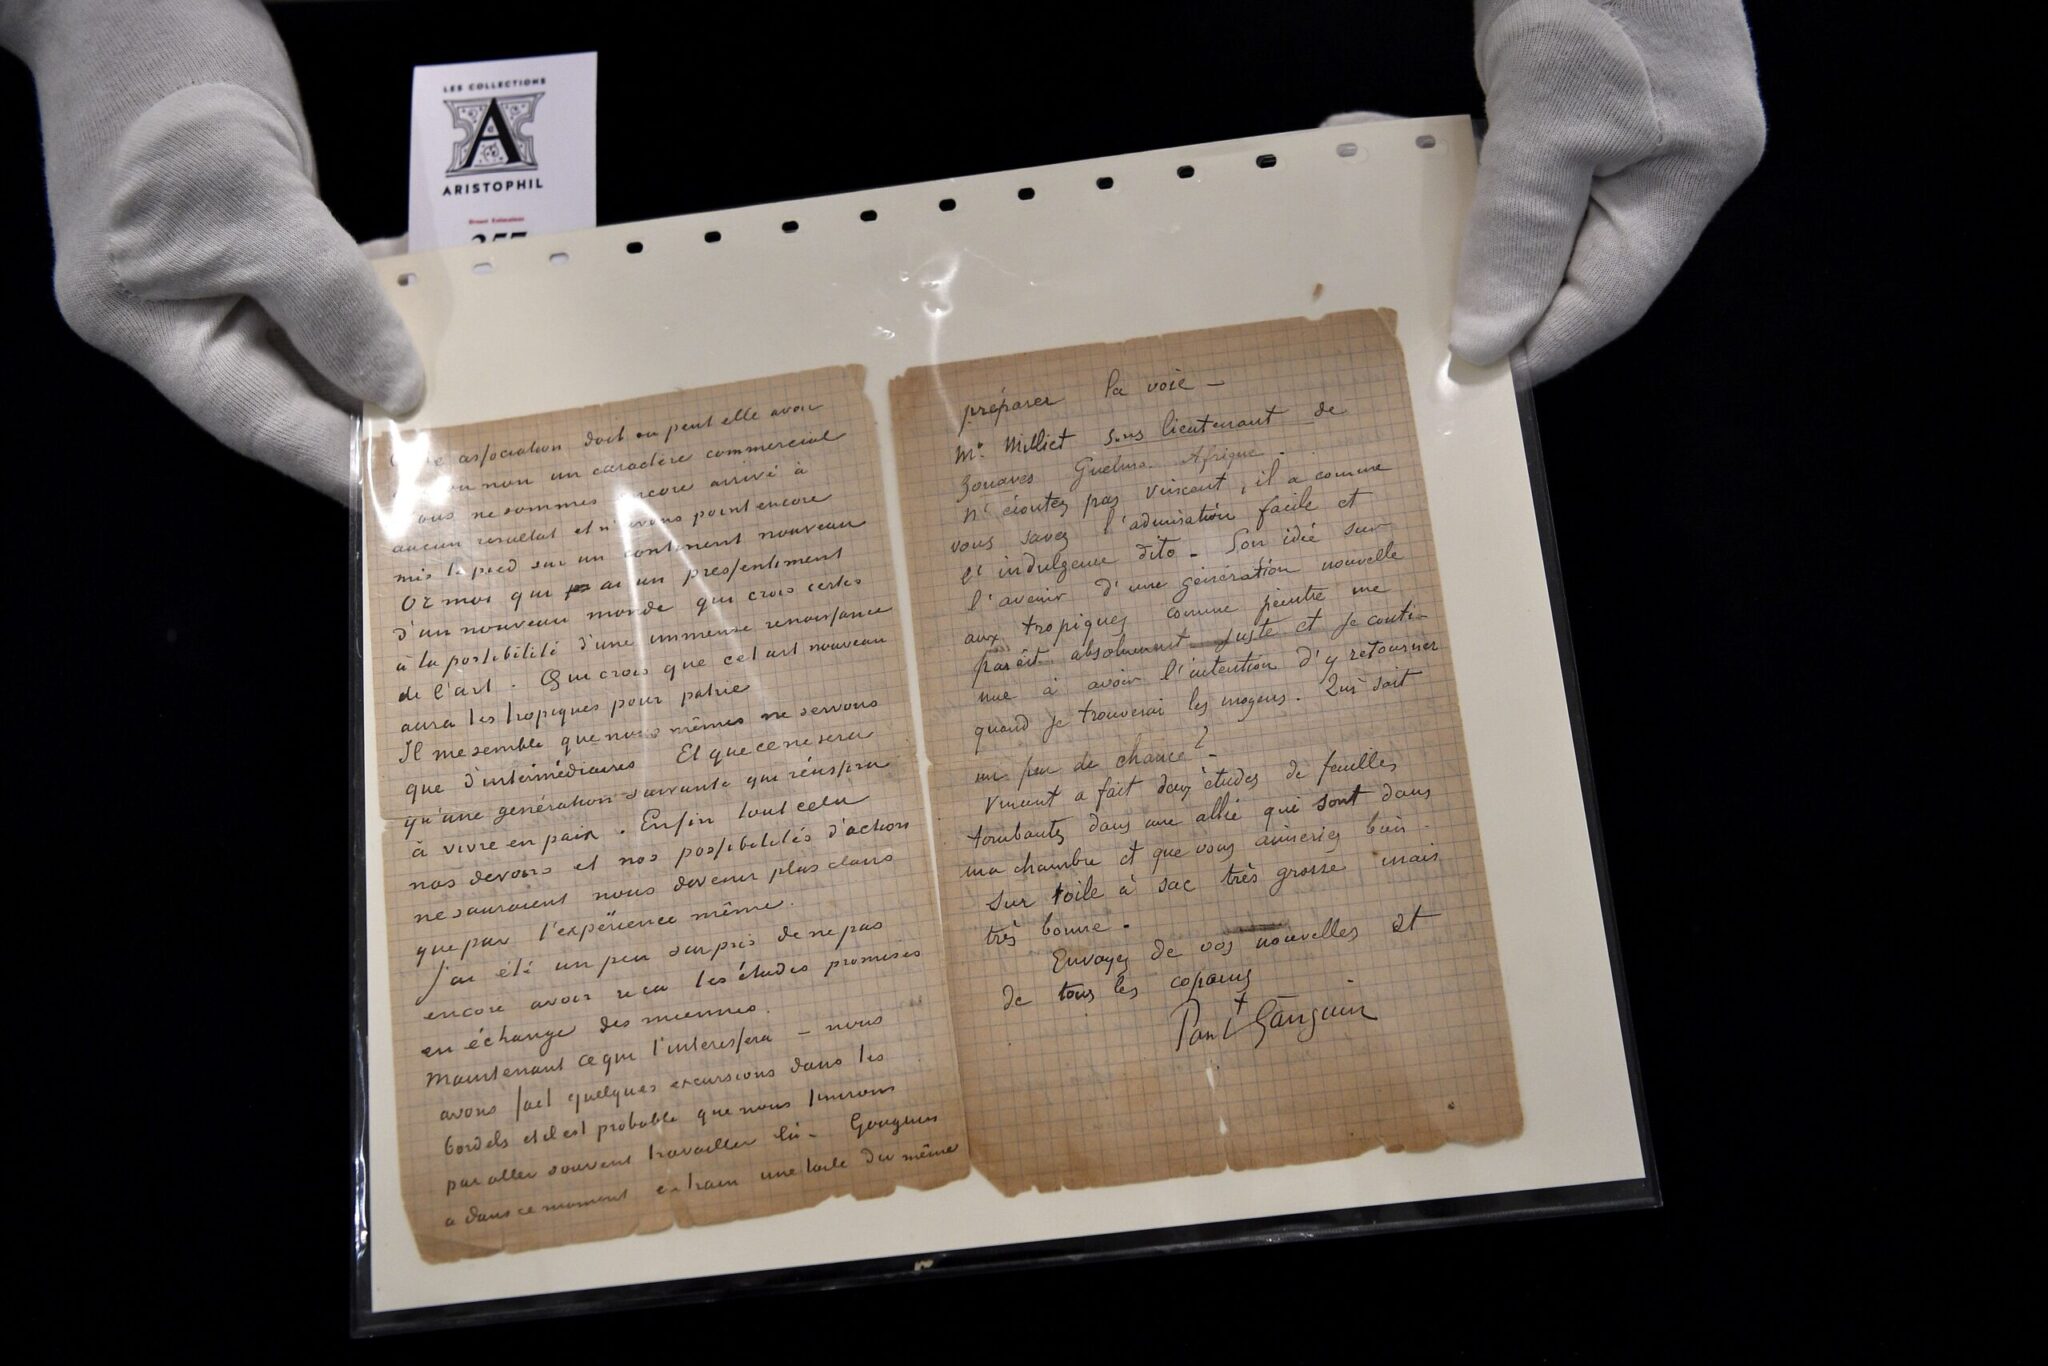 LES COLLECTIONS
A
ARISTOPHIL
357
association doit ou peut elle avoir
ou non un caractère commercial
nous ne sommes encore arrivé à
aucun resultat et n'avons point encore
mis le pied sur un continent nouveau
Or moi qui ai un pressentiment
d'un nouveau monde qui crois certes
à la possibilité d'une immense renaissance
de l'art. Qui crois que cet art nouveau
aura les tropiques pour patrie
Il me semble que nous mêmes ne servons
que d'intermédiaires Et que ce ne sera
qu'une génération suivante qui réussira
à vivre en paix. Enfin tout cela
nos devoirs et nos possibilités d'action
ne sauraient nous devenir plus clairs
que par l'expérience même.
J'ai été un peu surpris de ne pas
encore avoir reçu les études promises
en échange des miennes.
Maintenant ce qui t'interessera – nous
avons fait quelques excursions dans les
bordels et il est probable que nous finirons
par aller souvent travailler là – Gauguin
a dans ce moment en train une toile du même
préparer la voie –
Mr. Milliet sous lieutenant de
Zouaves Guelma Afrique.
N'écoutez pas Vincent, il a comme
vous savez l'admiration facile et
l'indulgence dito – Son idée sur
l'avenir d'une génération nouvelle
aux tropiques comme peintre me
parait absolument juste et je conti-
nue à avoir l'intention d'y retourner
quand je trouverai les moyens. Qui sait
un peu de chance? –
Vincent a fait deux études de feuilles
tombantes dans une allée qui sont dans
ma chambre et que vous aimeriez bien –
Sur toile à sac très grosse mais
très bonne –
Envoyez de vos nouvelles et
de tous les copains
Paul Gauguin